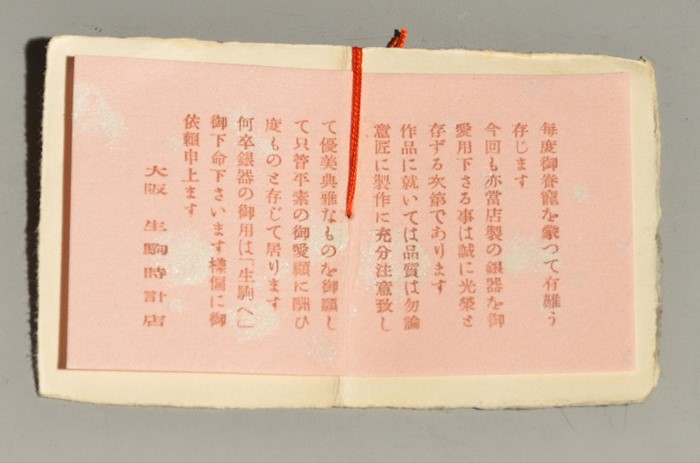 每度御眷寵を蒙つて有難う
存じます
今回も亦當店製の銀器を御
愛用下さる事は誠に光榮と
存ずる次第であります
作品に就いては品質は勿論
意匠に製作に充分注意致し
て優美典雅なものを御願し
て只管平素の御愛顧に酬ひ
度ものと存じて居ります
何卒銀器の御用は「生駒へ」
御下命下さいます樣偏に御
依賴申上ます
大阪 生駒時計店